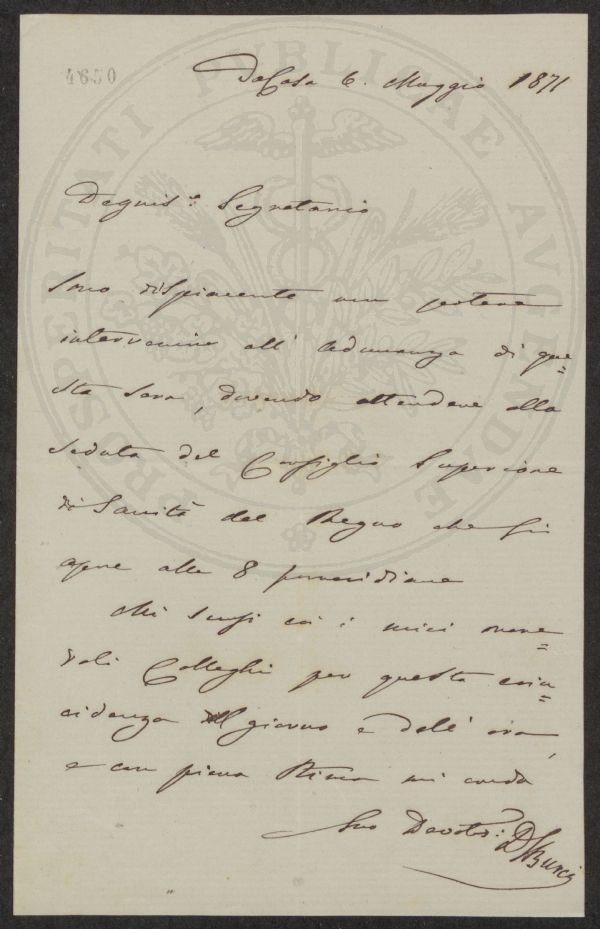 PROSPERITATI PUBLICAE AUGENDAE
4650
Da Casa 6. Maggio 1871
Degnis.e Segretario
Sono dispiacente non potere
intervenire all' adunanza di que=
sta sera, dovendo attendere alla
seduta del Consiglio Superiore
di Sanità del Regno che si
apre alle 8 pomeridiane
Mi scusi coi i miei onore=
voli Colleghi per questa coin=
cidenza del giorno e dell' ora,
e con piena stima mi creda
Suo Devotis:
Burci